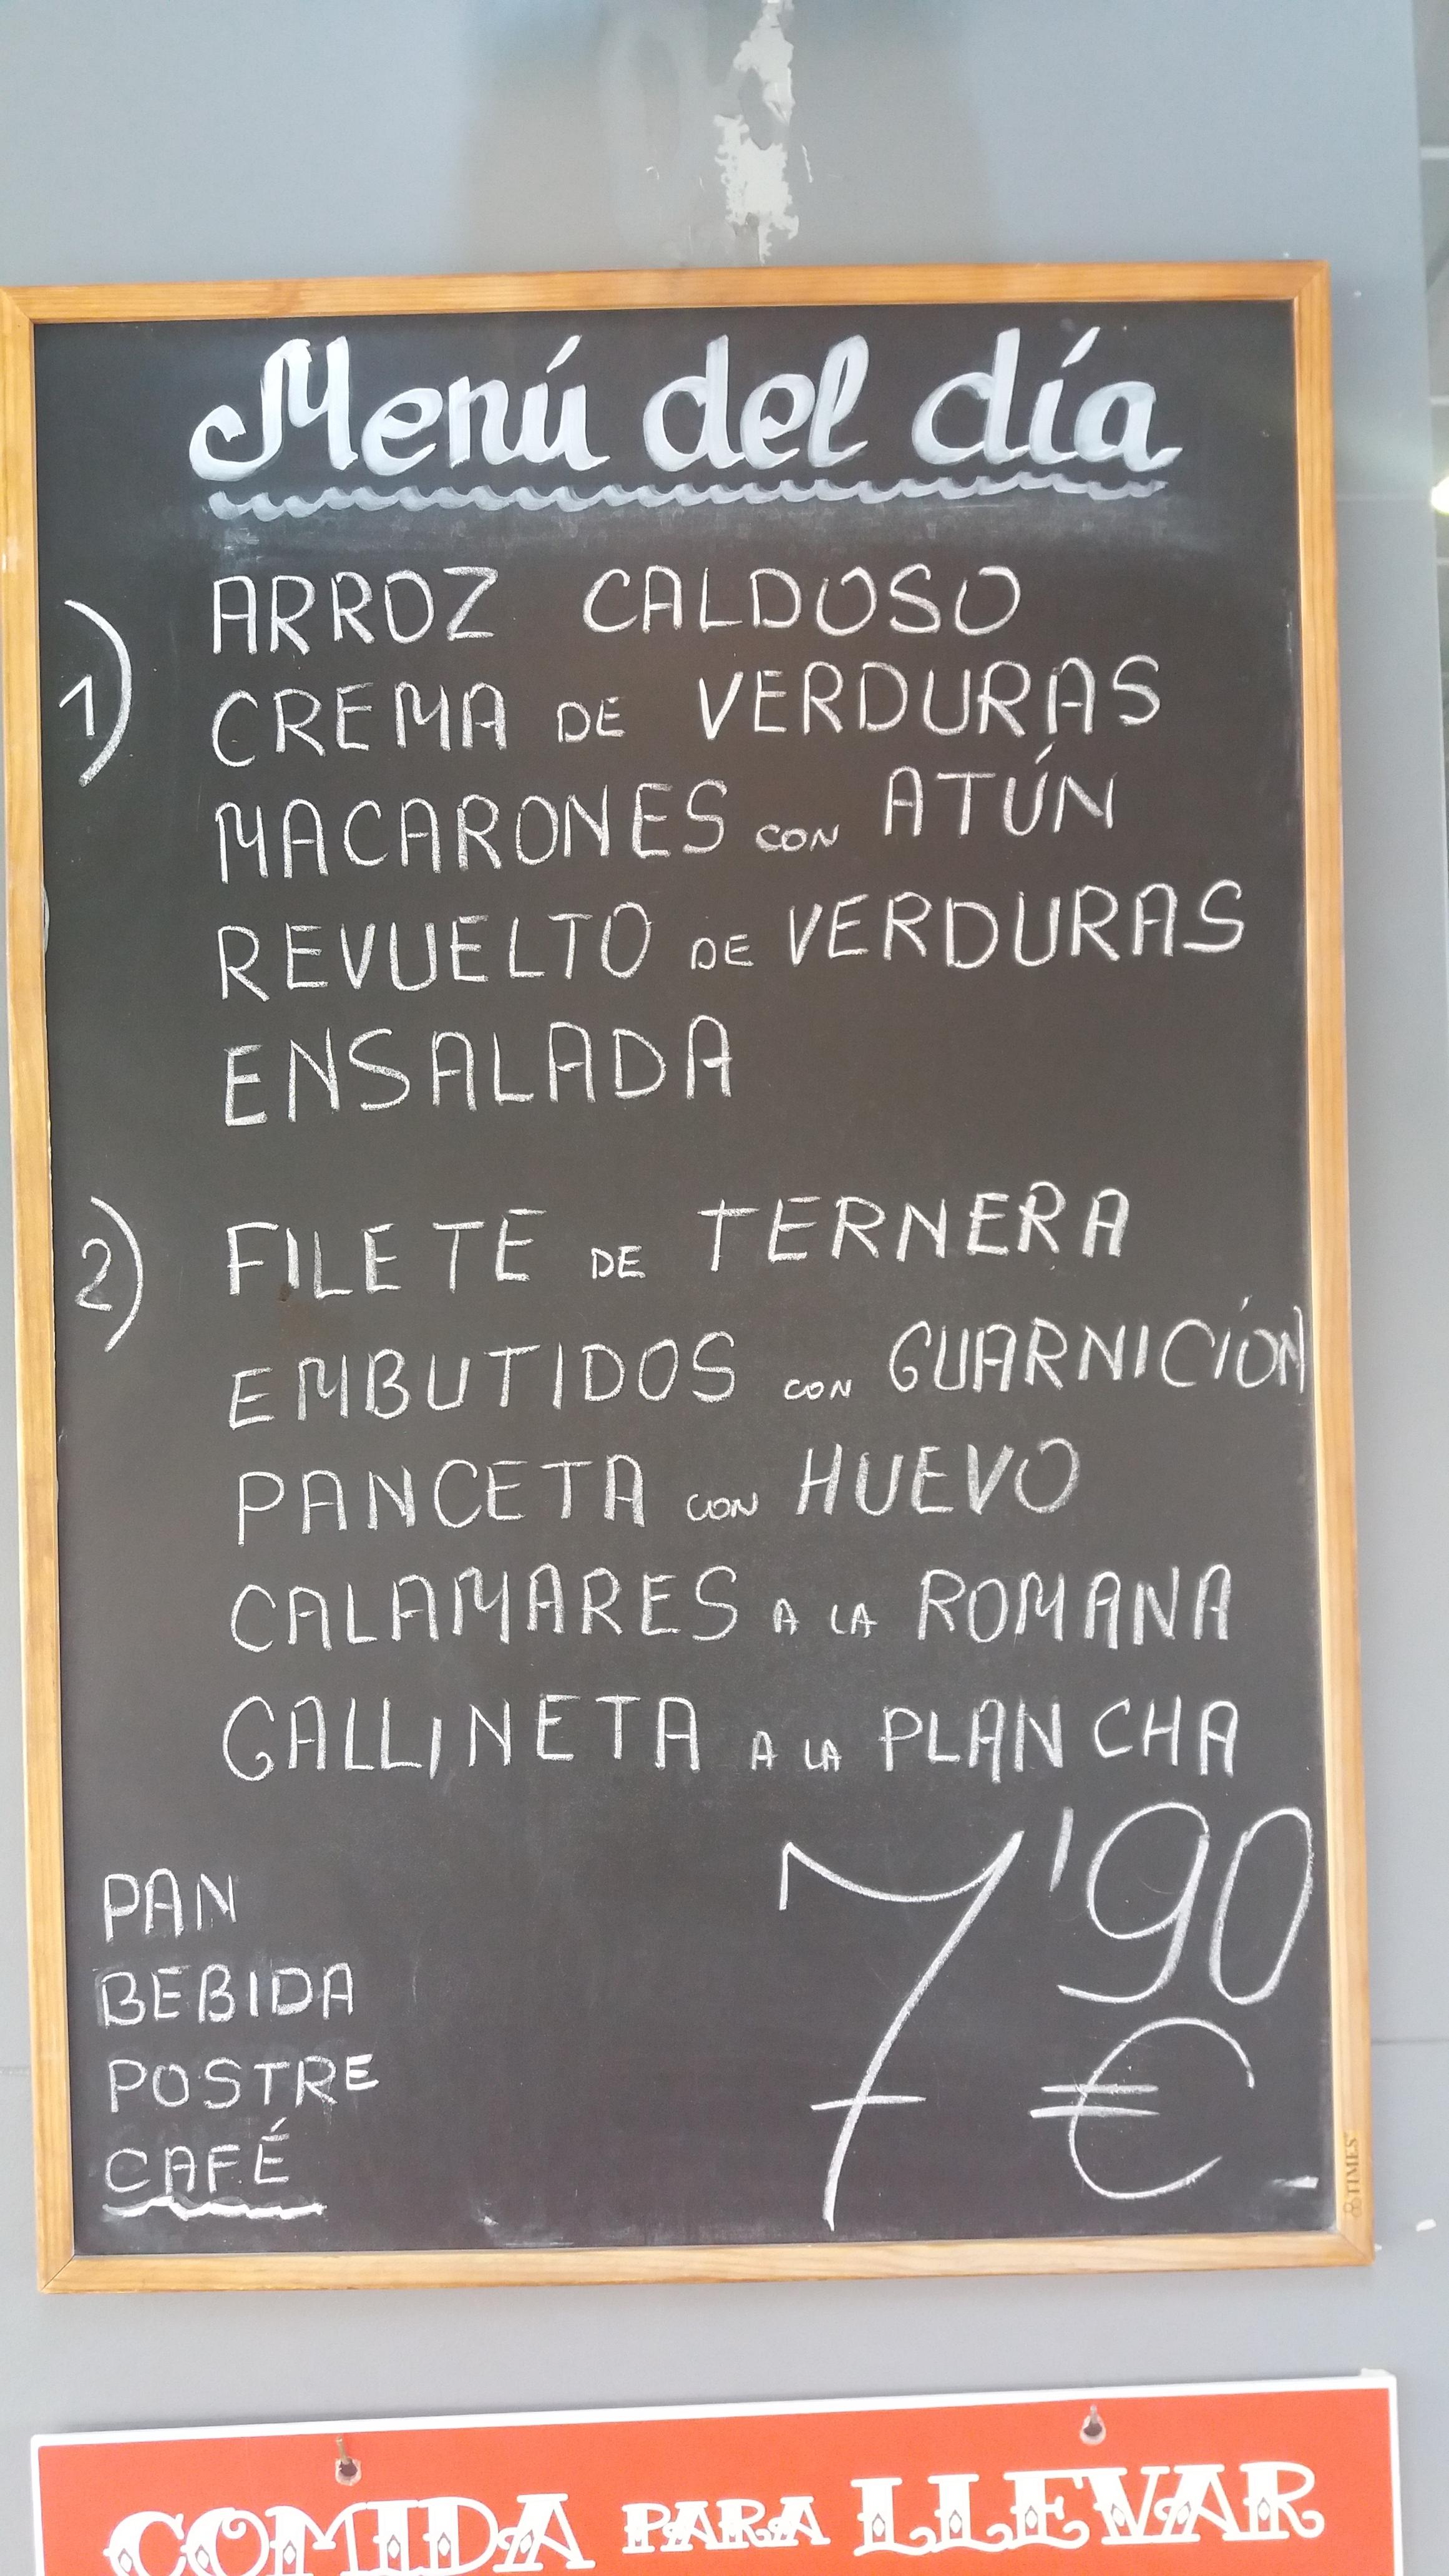 Menú del día
1) ARROZ CALDOSO
CREMA DE VERDURAS
MACARONES CON ATÚN
REVUELTO DE VERDURAS
ENSALADA
2) FILETE DE TERNERA
EMBUTIDOS CON GUARNICIÓN
PANCETA CON HUEVO
CALAMARES A LA ROMANA
GALLINETA A LA PLANCHA
PAN
BEBIDA
POSTRE
CAFÉ
7'90 €
TIMES
COMIDA PARA LLEVAR